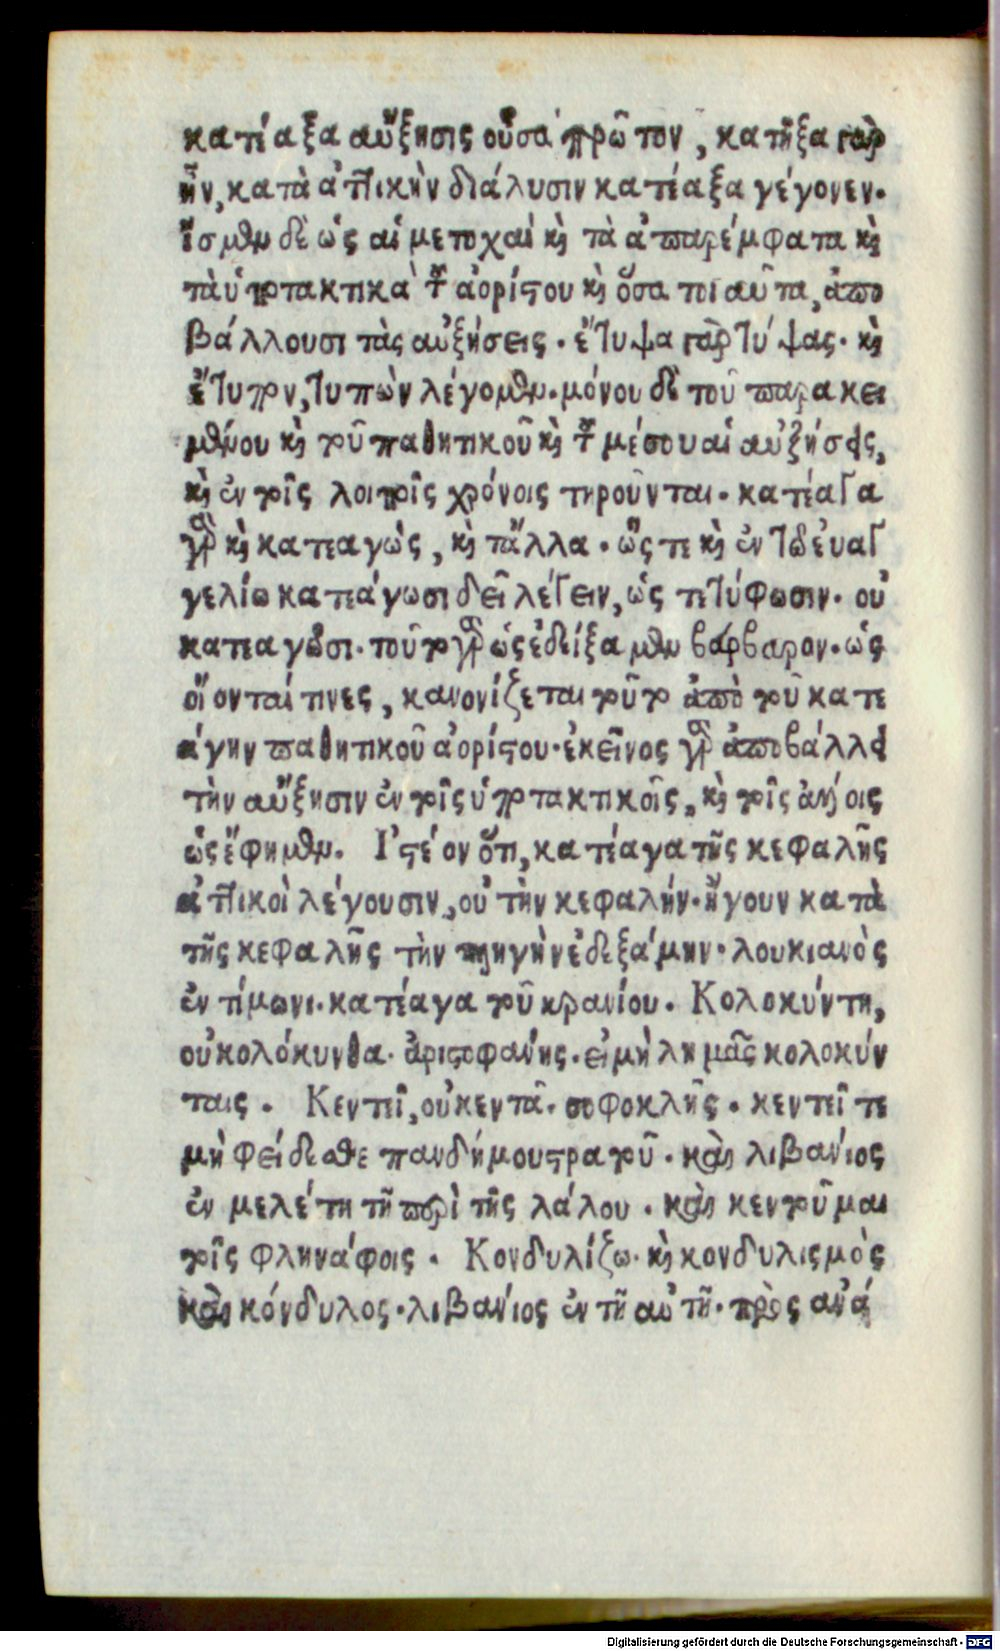 κατέαξα αὔξησις οὖσα πρῶτον, κατῆξα γὰρ
ἦν, κατὰ ἀττικὴν διάλυσιν κατέαξα γέγονεν.
ἴσμεν δὲ ὡς αἱ μετοχαὶ καὶ τὰ ἀπαρέμφατα καὶ
τὰ ὑποτακτικὰ τοῦ ἀορίστου καὶ ὅσα τοιαῦτα, ἀπο
βάλλουσι τὰς αὐξήσεις. ἔτυψα γὰρ τύψας. καὶ
ἔτυπον, τυπὼν λέγομεν. μόνου δὲ τοῦ παρακει
μένου καὶ τοῦ παθητικοῦ καὶ τοῦ μέσου αἱ αὐξήσεις,
καὶ ἐν τοῖς λοιποῖς χρόνοις τηροῦνται. κατέαγα
γὰρ καὶ κατεαγὼς, καὶ τἄλλα. ὥστε καὶ ἐν τῶ εὐαγ
γελίω κατεάγωσι δεῖ λέγειν, ὡς τετύφωσιν. οὐ
κατεαγῶσι. τοῦτο γὰρ ὡς ἐδείξαμεν βάρβαρον. ὡς
οἴονταί τινες, κανονίζεται τοῦτο ἀπὸ τοῦ κατε
άγην παθητικοῦ ἀορίστου. ἐκεῖνος γὰρ ἀποβάλλει
τὴν αὔξησιν ἐν τοῖς ὑποτακτικοῖς, καὶ τοῖς ἄλλοις
ὡς ἔφημεν. Ἰστέον ὅτι, κατέαγα τῆς κεφαλῆς
ἀττικοὶ λέγουσιν, οὐ τὴν κεφαλήν. ἤγουν κατὰ
τῆς κεφαλῆς τὴν πληγὴν ἐδεξάμην. λουκιανὸς
ἐν τίμωνι. κατέαγα τοῦ κρανίου. Κολοκύντη,
οὐ κολόκυνθα. ἀριστοφάνης. εἰ μὴ λημᾶς κολοκύν
ταις. Κεντεῖ, οὐ κεντᾶ. σοφοκλῆς. κεντεῖτε
μὴ φείδεσθε πανδήμου στρατοῦ. καὶ λιβάνιος
ἐν μελέτη τῆ περὶ τῆς λάλου. καὶ κεντοῦμαι
τοῖς φληνάφοις. Κονδυλίζω. καὶ κονδυλισμὸς
καὶ κόνδυλος. λιβάνιος ἐν τῆ αὐτῆ. πρὸς ἀνά
Digitalisierung gefördert durch die Deutsche Forschungsgemeinschaft - DFG